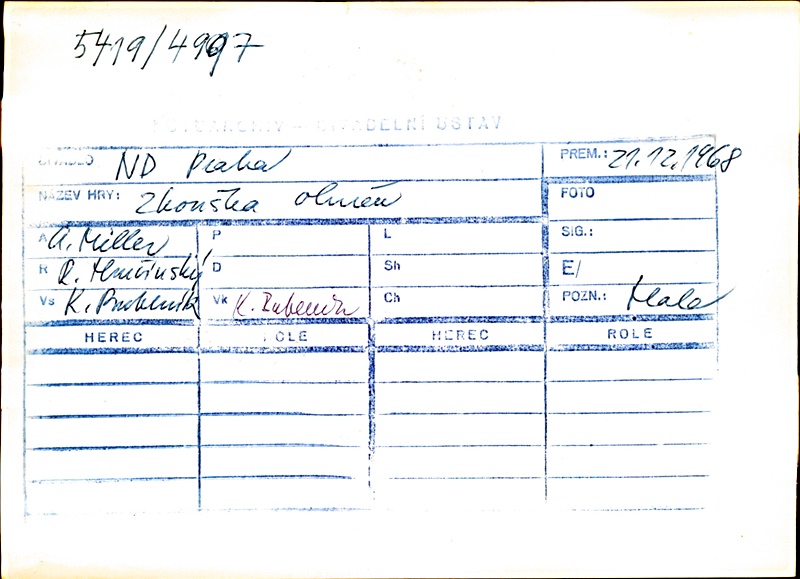 5419/4997
FOTOARCHIV - DIVADELNÍ ÚSTAV
DIVADLO: ND Praha
PREM.: 21.12.1968
NÁZEV HRY: Zkouška ohněm
FOTO
A A. Miller P L SIG.:
R R. Hrušínský D Sh E/
Vs K. Bubeník Vk K. Bubeník Ch POZN.: Mala
HEREC ROLE HEREC ROLE